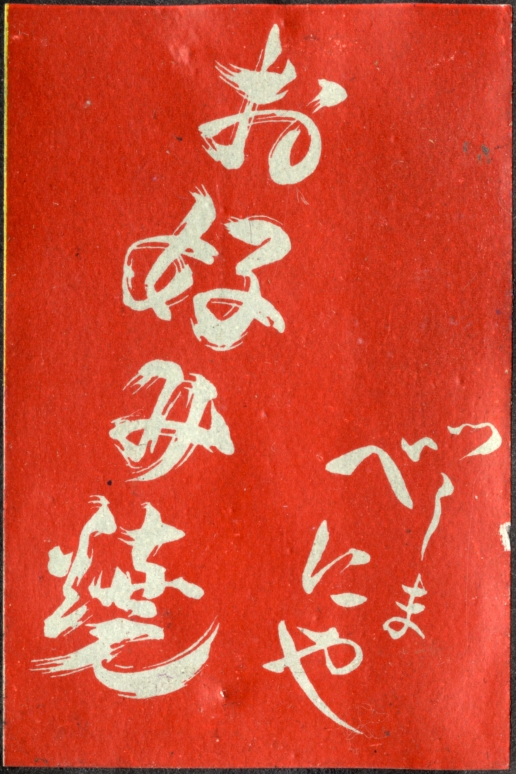 つしま
べにや
お好み焼